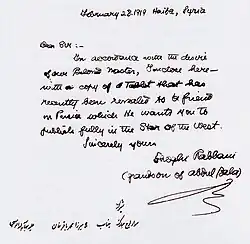 February 28. 1919 Haifa, Syria
Dear Sir:-
In accordance with the desire
of our Beloved Master, I enclose here-
with a copy of a Tablet that has
recently been revealed to a friend
in Persia which He wants you to
publish fully in the Star of the West.
Sincerely yours
Shoghi Rabbani
(grandson of Abdul Baha)